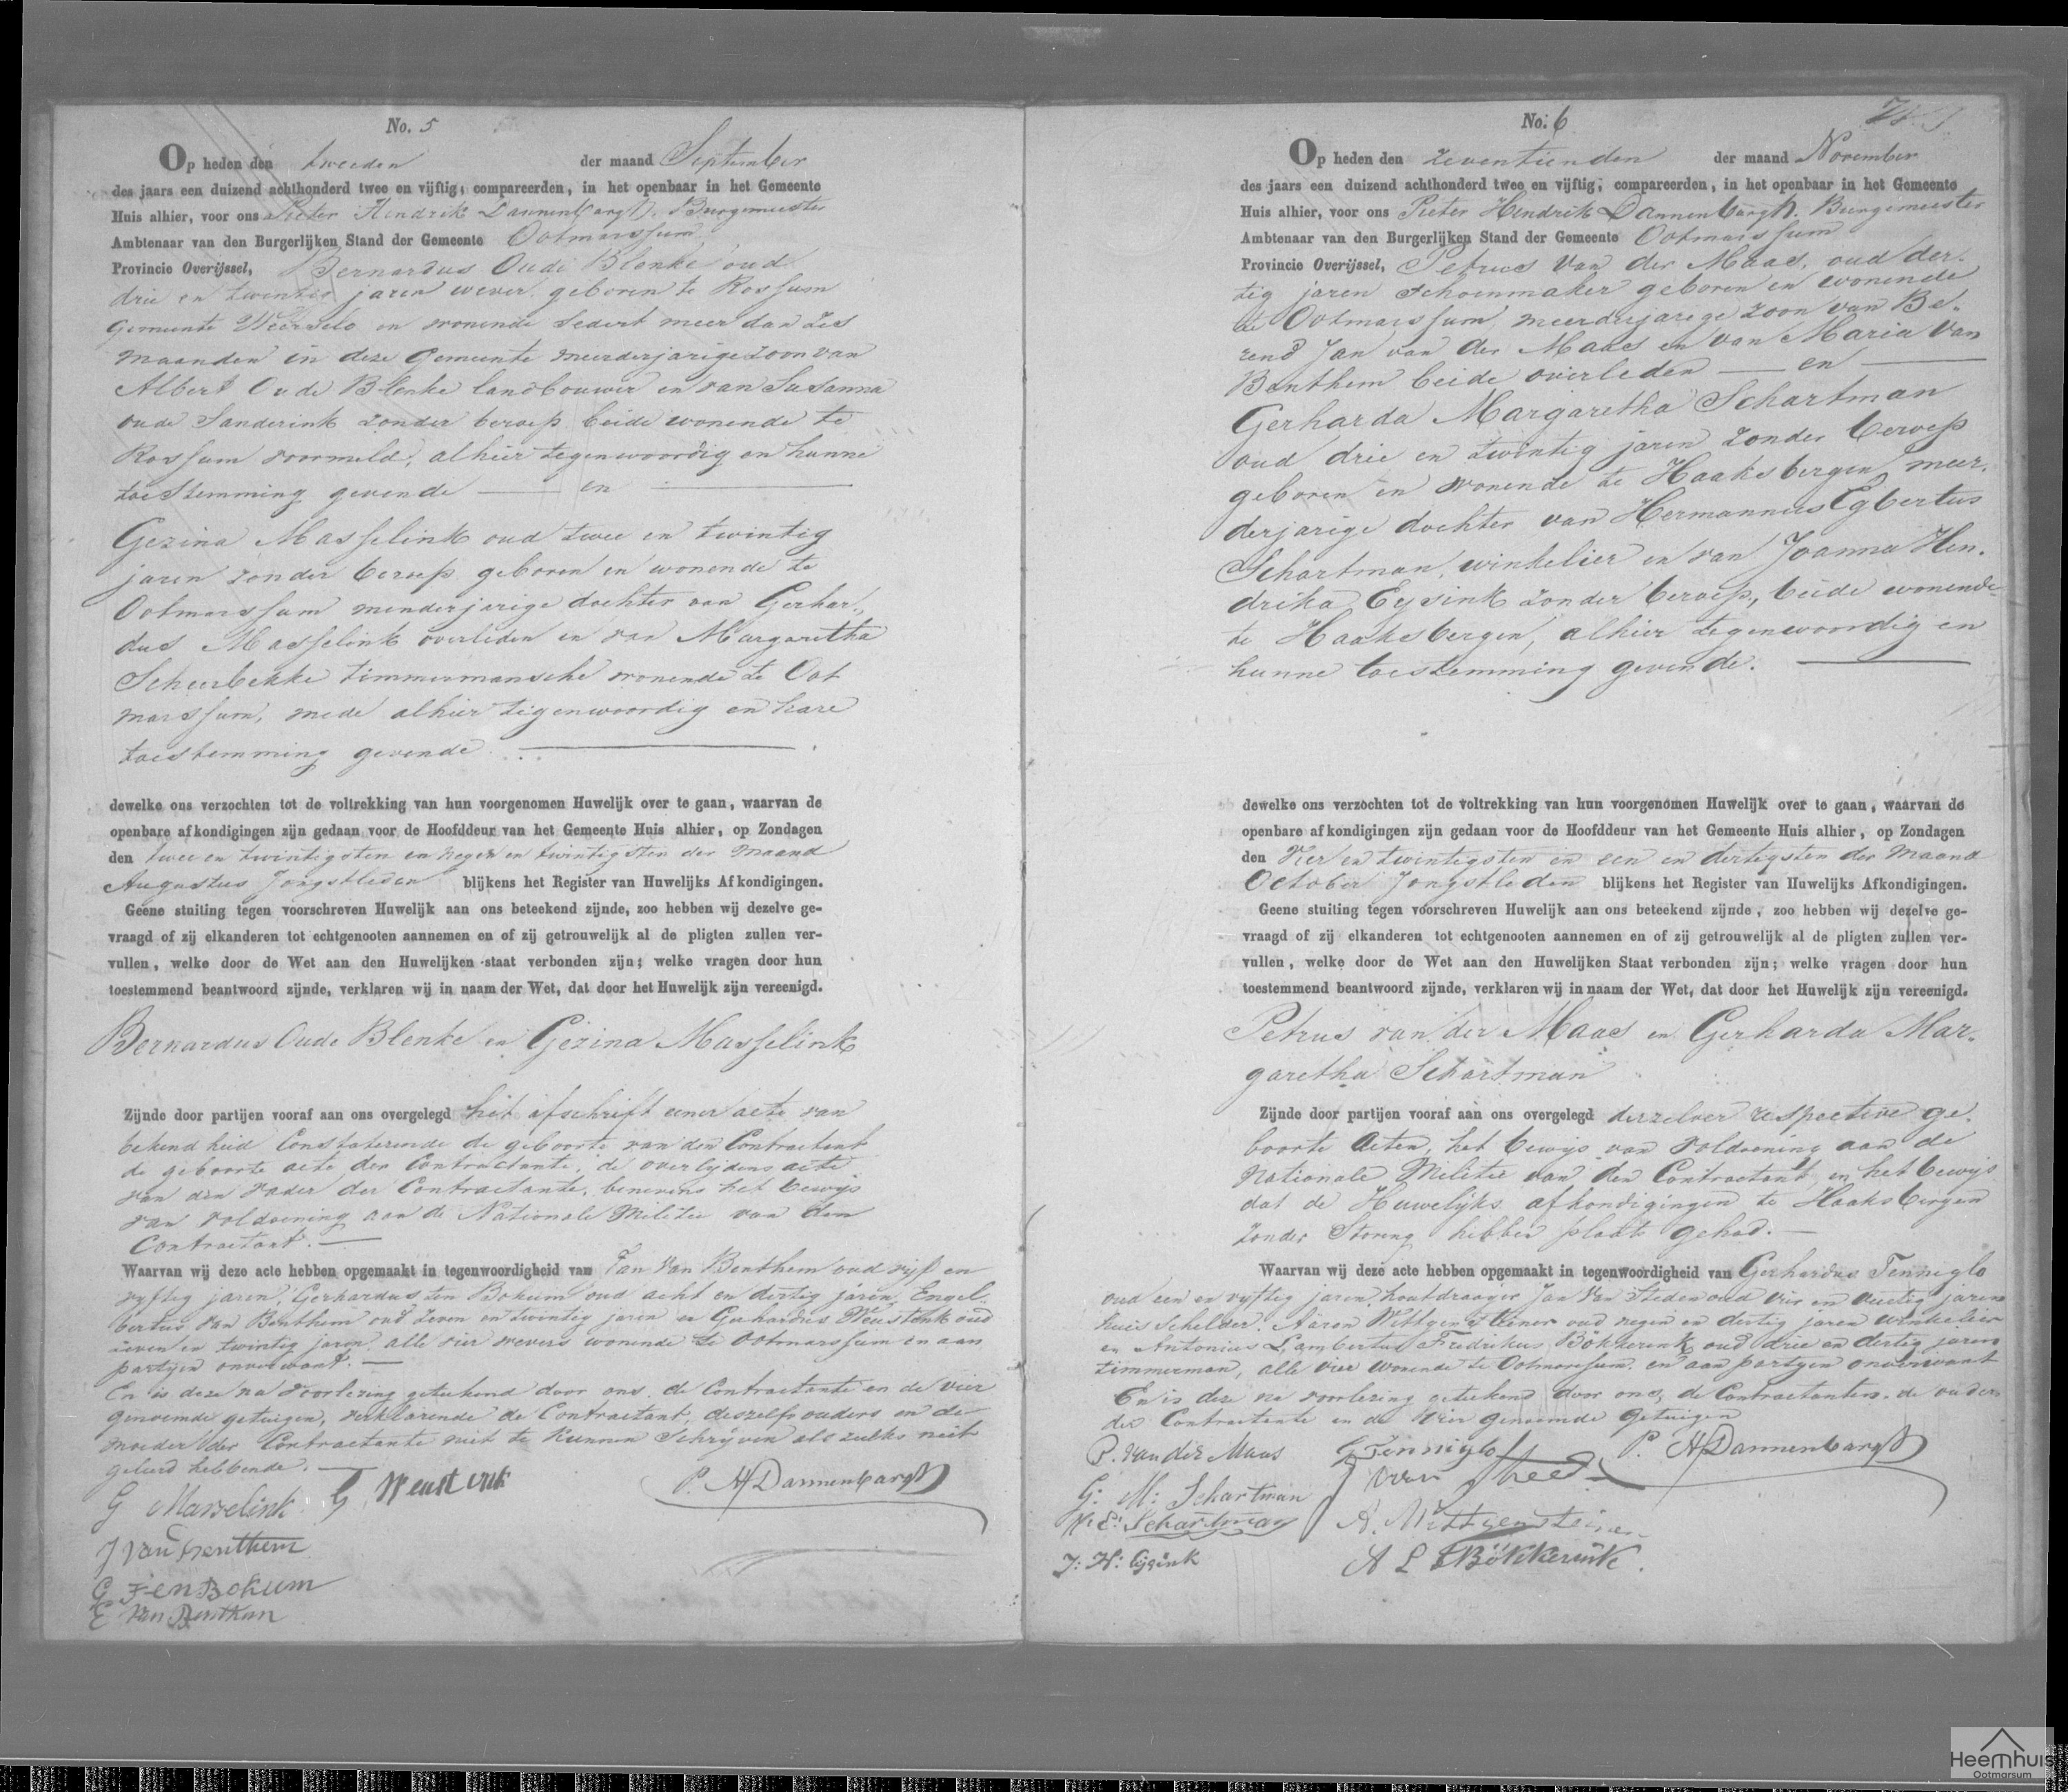 No. 5
Op heden den tweeden der maand September
des jaars een duizend achthonderd twee en vijftig; compareerden, in het openbaar in het Gemeente
Huis alhier, voor ons Pieter Hendrik Dannenbargh. Burgemeester
Ambtenaar van den Burgerlijken Stand der Gemeente Ootmarssum
Provincie Overijssel, Bernardus Oude Blenke oud
drie en twintig jaren wever geboren te Rossum
Gemeente Weerselo en wonende sedert meer dan zes
maanden in deze Gemeente meerderjarige zoon van
Albert Oude Blenke landbouwer en van Susanna
oude Sanderink zonder beroep beide wonende te
Rossum voormeld, alhier tegenwoordig en hunne
toestemming gevende — en —
Gezina Masselink oud twee en twintig
jaren zonder beroep geboren en wonende te
Ootmarssum minderjarige dochter van Gerhar„
dus Masselink overleden en van Margaretha
Scheerbekke timmermansche wonende te Oot
marssum, mede alhier tegenwoordig en hare
toestemming gevende. —
dewelke ons verzochten tot de voltrekking van hun voorgenomen Huwelijk over te gaan, waarvan de
openbare afkondigingen zijn gedaan voor de Hoofddeur van het Gemeente Huis alhier, op Zondagen
den twee en twintigsten en negen en twintigsten der maand
Augustus jongstleden blijkens het Register van Huwelijks Afkondigingen.
Geene stuiting tegen voorschreven Huwelijk aan ons beteekend zijnde, zoo hebben wij dezelve ge-
vraagd of zij elkanderen tot echtgenooten aannemen en of zij getrouwelijk al de pligten zullen ver-
vullen, welke door de Wet aan den Huwelijken staat verbonden zijn; welke vragen door hun
toestemmend beantwoord zijnde, verklaren wij in naam der Wet, dat door het Huwelijk zijn vereenigd.
Bernardus Oude Blenke en Gezina Masselink
Zijnde door partijen vooraf aan ons overgelegd het afschrift eener acte van
bekendheid Constaterende de geboorte van den Contractant
de geboorte acte der Contractante, de overlijdens acte
van den vader der Contractante, benevens het bewijs
van voldoening aan de Nationale Militie van den
Contractant. —
Waarvan wij deze acte hebben opgemaakt in tegenwoordigheid van Jan van Benthem oud vijf en
vyftig jaren, Gerhardus ten Bokum oud acht en dertig jaren, Engel„
bertus van Benthem oud zeven en twintig jaren en Gerhardus Weustenk oud
zeven en twintig jaren, alle vier wevers wonende te Ootmarssum en aan
partijen onverwant. —
En is deze na voorlezing geteekend door ons, de Contractante en de vier
genoemde getuigen, verklarende de Contractant, deszelfs ouders en de
moeder der Contractante niet te kunnen schrijven als zulks niet
geleerd hebbende. —
G Masselink G. Weustenk P. H Dannenbargh
J van Benthem
G Ten Bokum
E van Benthem
No. 6
Op heden den zeventienden der maand November
des jaars een duizend achthonderd twee en vijftig, compareerden, in het openbaar in het Gemeente
Huis alhier, voor ons Pieter Hendrik Dannenbargh. Burgemeester
Ambtenaar van den Burgerlijken Stand der Gemeente Ootmarssum
Provincie Overijssel, Petrus van der Maas, oud der„
tig jaren schoenmaker geboren en wonende
te Ootmarssum, meerderjarige zoon van Be„
rend Jan van der Maas en van Maria van
Benthem beide overleden — en —
Gerharda Margaretha Schartman
oud drie en twintig jaren zonder beroep
geboren en wonende te Haaksbergen, meer„
derjarige dochter van Hermannus Egbertus
Schartman, winkelier en van Joanna Hen„
drika Eysink zonder beroep, beide wonende
te Haaksbergen, alhier tegenwoordig en
hunne toestemming gevende. —
dewelke ons verzochten tot de voltrekking van hun voorgenomen Huwelijk over te gaan, waarvan de
openbare afkondigingen zijn gedaan voor de Hoofddeur van het Gemeente Huis alhier, op Zondagen
den Vier en twintigsten en een en dertigsten der maand
October jongstleden blijkens het Register van Huwelijks Afkondigingen.
Geene stuiting tegen voorschreven Huwelijk aan ons beteekend zijnde, zoo hebben wij dezelve ge-
vraagd of zij elkanderen tot echtgenooten aannemen en of zij getrouwelijk al de pligten zullen ver-
vullen, welke door de Wet aan den Huwelijken Staat verbonden zijn; welke vragen door hun
toestemmend beantwoord zijnde, verklaren wij in naam der Wet, dat door het Huwelijk zijn vereenigd.
Petrus van der Maas en Gerharda Mar„
garetha Schartman
Zijnde door partijen vooraf aan ons overgelegd derzelver respective ge„
boorte Acten, het bewijs van voldoening aan de
Nationale Militie van den Contractant, en het bewijs
dat de Huwelijks afkondigingen te Haaksbergen
zonder storing hebben plaats gehad. —
Waarvan wij deze acte hebben opgemaakt in tegenwoordigheid van Gerhardus Tenniglo
oud een en vyftig jaren houtdraager Jan van Steden oud vier en veertig jaren
huis Schelder. Aaron Wittgensteiner oud negen en dertig jaren winkelier
en Antonius Lambertus Fredrikus Bökkerink oud drie en dertig jaren
timmerman, alle vier wonende te Ootmarssum en aan partyen onverwant
En is deze na voorlezing geteekend door ons, de Contractanten, de ouders
der Contractante en de vier genoemde getuigen
P. van der Maas G Tenniglo P. H Dannenbargh
G: M: Schartman J van Steden
H: E: Schartman A. Wittgensteiner
J: H: Eysink A L F Bökkerink.
Heemhuis
Ootmarsum